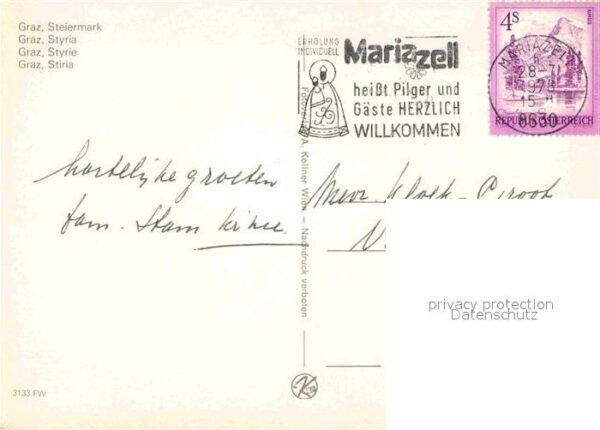 Graz, Steiermark
Graz, Styria
Graz, Styrie
Graz, Stiria
ERHOLUNG
INDIVIDUELL
Mariazell
heißt Pilger und
Gäste HERZLICH
WILLKOMMEN
4S
MARIAZELL
28.-7.
1978
15 H
8630
REPUBLIK ÖSTERREICH
hartelijke groeten
fam. Stam
Mevr. Kloek - Groot
Fotoverlag A. Kellner Wien - Nachdruck verboten
privacy protection
Datenschutz
3133 FW